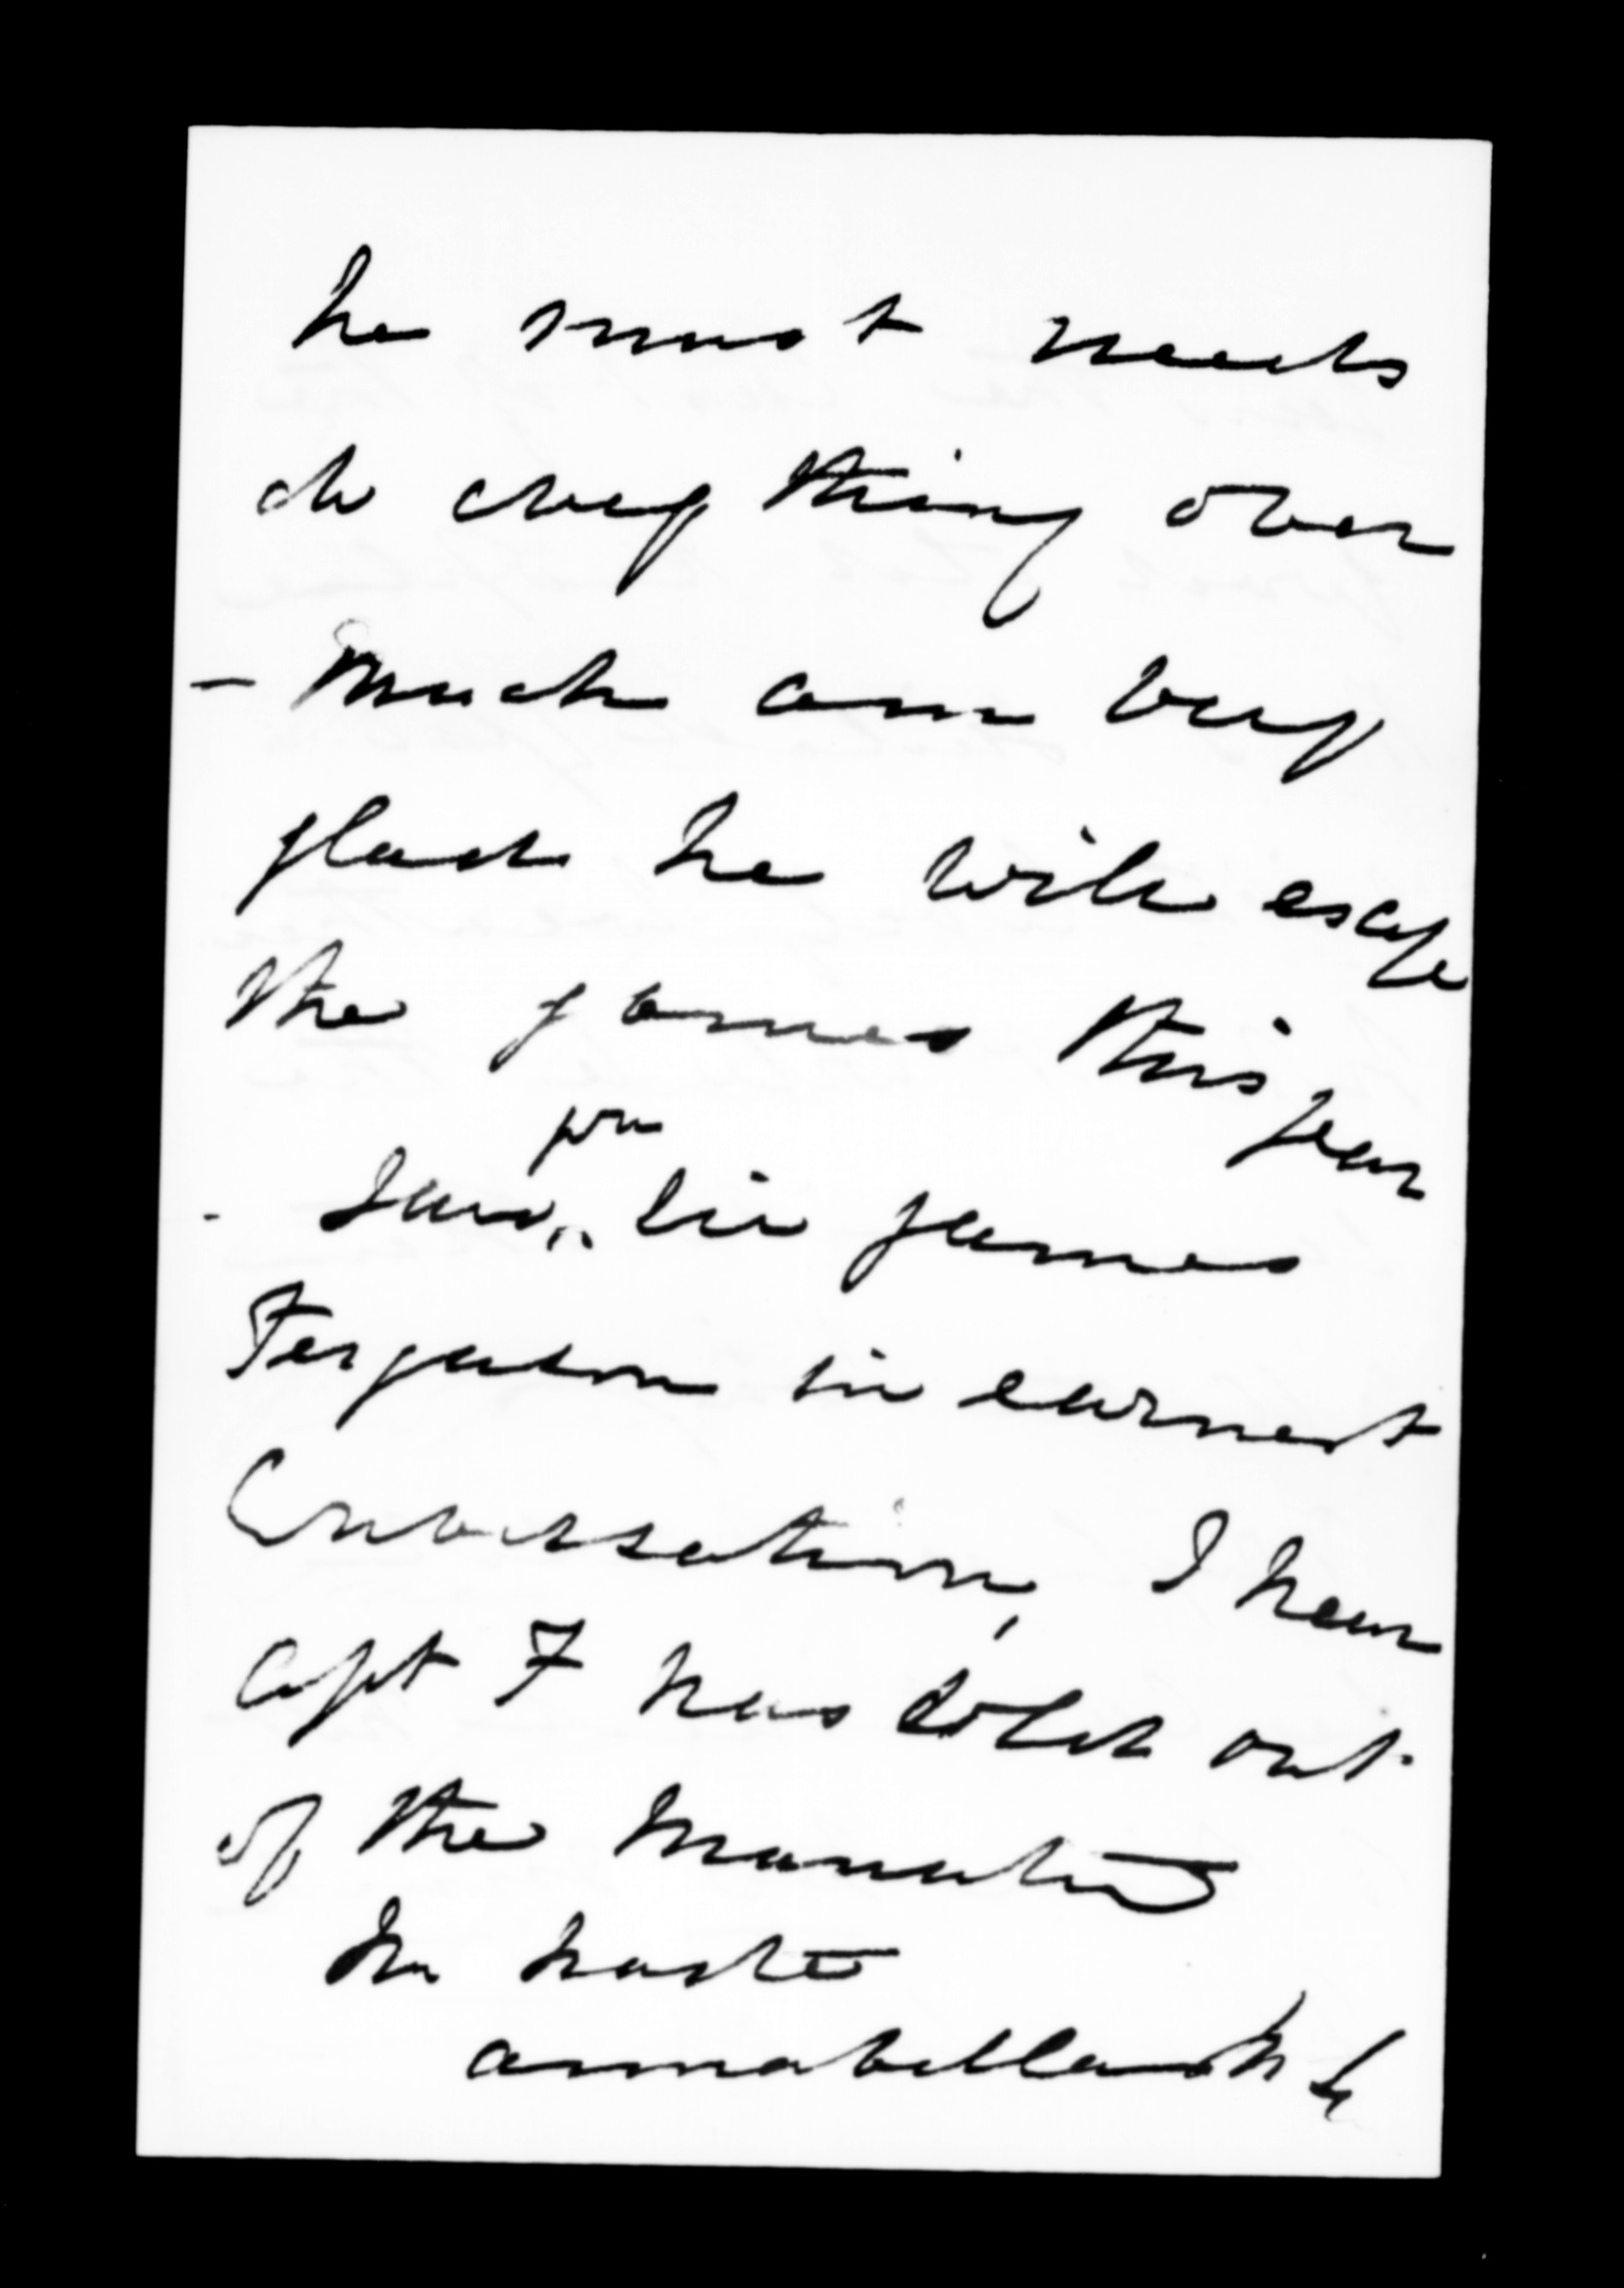 he must needs
do every thing over
- Much am very
glad he will escape
the games this year
- I saw you & Sir James
Ferguson in earnest
Conversation, I hear
Capt F has sold out
of the
In haste
Annabella